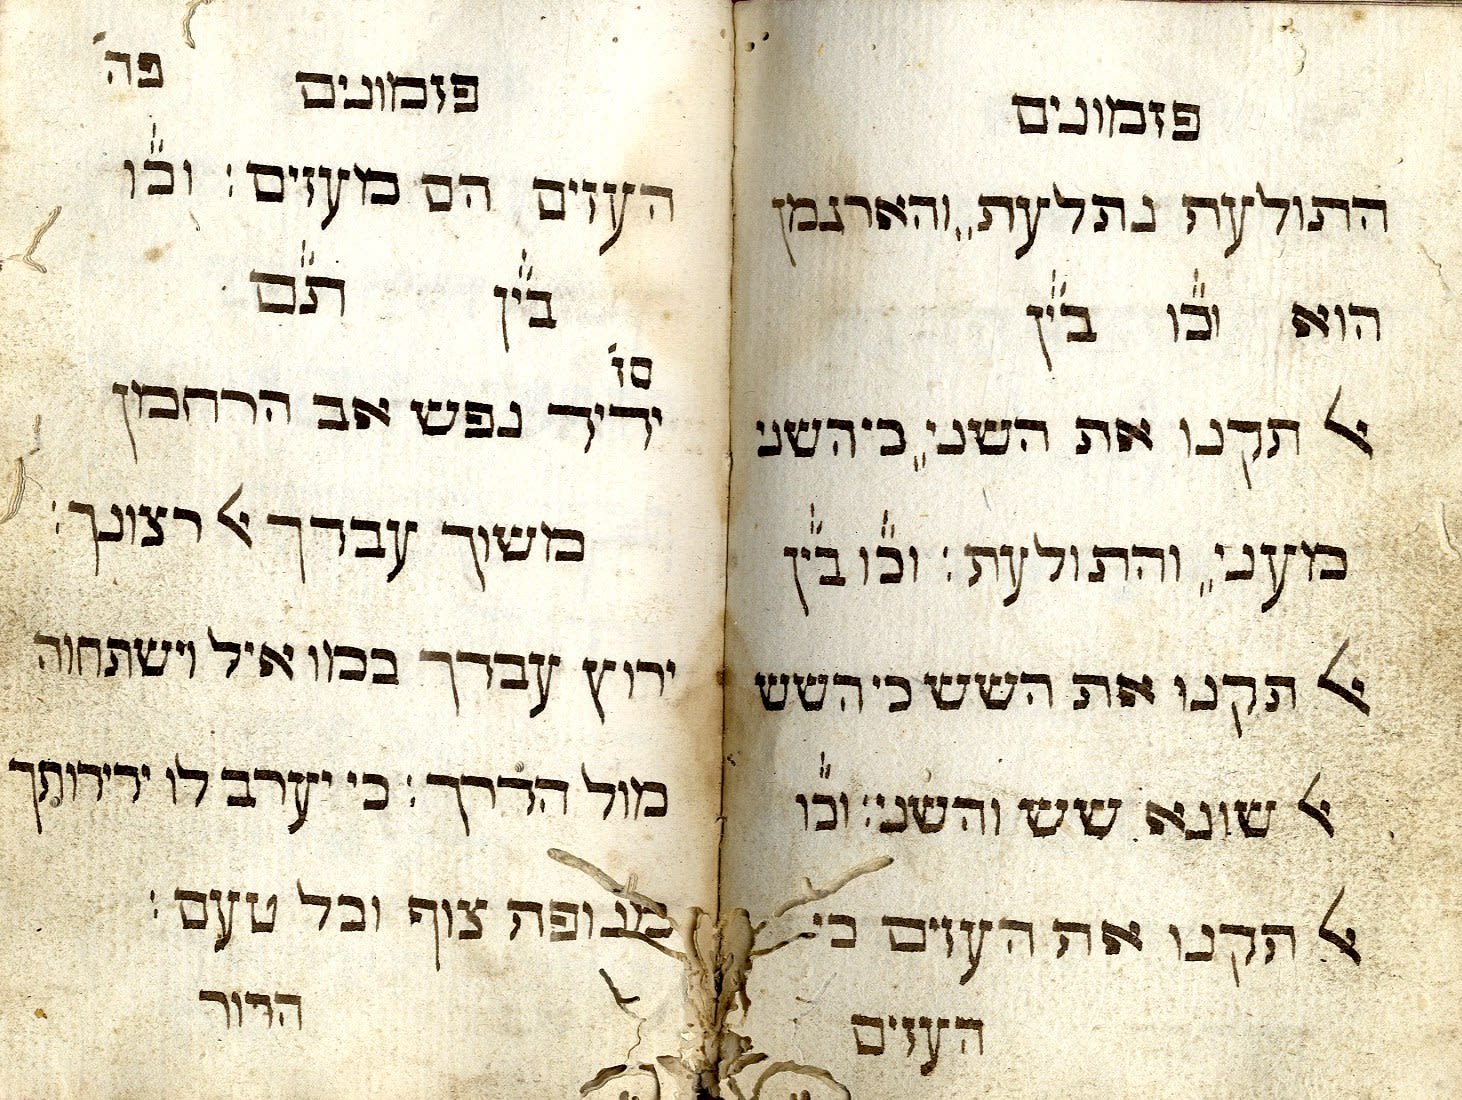 פזמונים
התולעת נתלעת,, והארגמן
הוא וכ״ו בי״ן
ﭏ תקנו את השני,, כי השני
מעני,, והתולעת: וכ״ו בי״ן
ﭏ תקנו את השש כי השש
ﭏ שונא שש והשני: וכ״ו
ﭏ תקנו את העזים כי
העזים
פזמונים פה׳
העזים הם מעזים: וכ״ו
בי״ן ת״ם
סו׳
ידיד נפש אב הרחמן
משוך עבדך ﭏ רצונך:
ירוץ עבדך כמו איל וישתחוה
מול הדרך: כי יערב לו ידידותך
מנופה צוף וכל טעם:
הדור